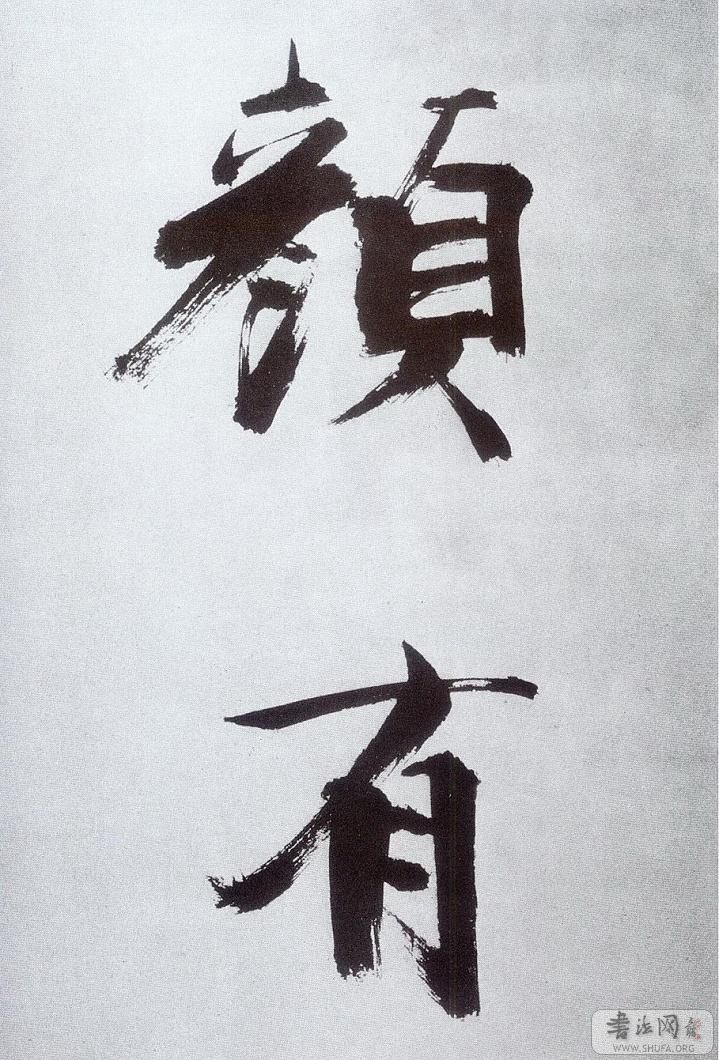 顏有
書法网
WWW.SHUFA.ORG